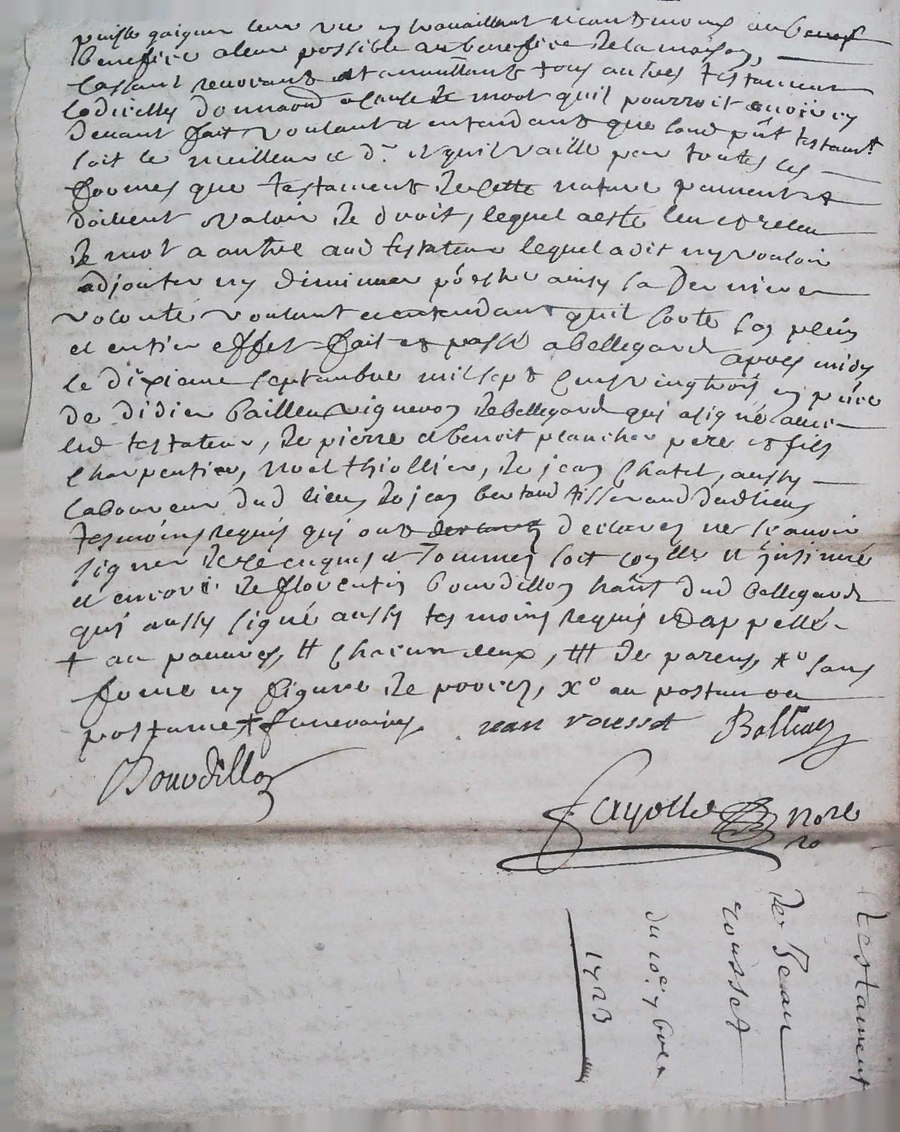 puisse gaigner leur vie en travaillant neantmoins au
benefice a leur possible au benefice de la maison,
cassant revocant et annullant tous autres testament
codicilles donnaons a cause de mort quil pourroit avoir cy
devant fait voulant et entendant que sond pñt testamt
soit le meilleure et dr et quil vaille par toutes les
formes que testament de cette nature peuvent et
doibvent valoir de droit, lequel a esté leu et releu
de mot a autre aud testateur lequel a dit ny vouloir
adjouter ny diminuer pour estre ainsy sa derniere
volonté voulant et entendant quil sorte son plein
et entier effet fait et passé a bellegarde apres midy
le dixieme septambre mil sept cens vingt trois en pñce
de didier Bailleu vigneron de bellegarde qui a signé avec
led testateur, de pierre et benoit plancher pere et fils
charpentier, noel thiollier, de jean chatel, aussy
laboureur dud lieu de jean bertaud tisserand dud lieu
tesmoins requis qui ont declarer ne scavoir
signer de ce enquis et sommes soit et insinué
et encore de florentin bourdillon hañt dud bellegarde
qui aussy signé aussy tesmoins requis et appellé
+ au pauvres, ++ chacun deux, +++ de parens, xo sans
forme ny figure de procez, xo au postume ou
postume + funeraires jean rousset
Bourdillon
Fayolle nore
ro
testament
de Jean
rousset
du 10e 7bre
1723